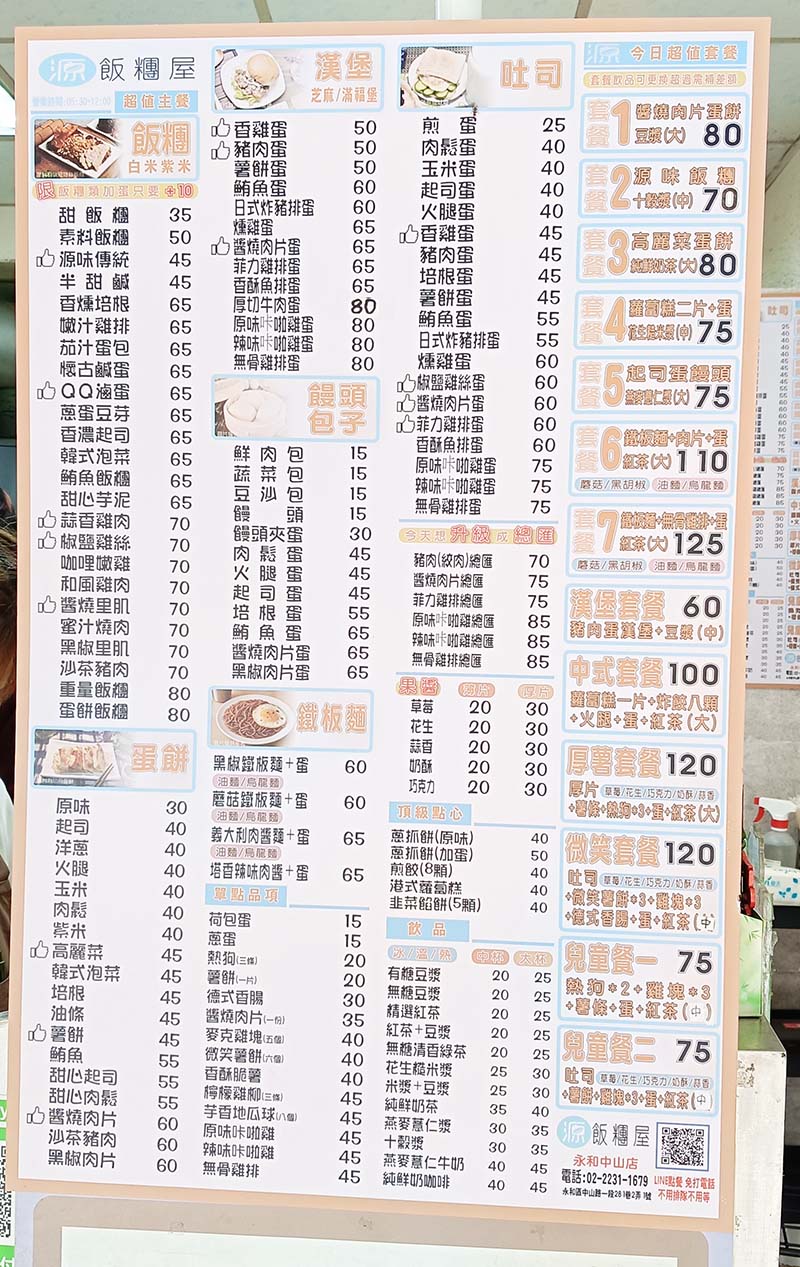 源 飯糰屋
營業時間:05:30-12:00 超值主餐
飯糰
白米紫米
限飯糰類加蛋只要+10
甜飯糰 35
素料飯糰 50
源味傳統 45
半甜鹹 45
香燻培根 65
嫩汁雞排 65
茄汁蛋包 65
懷古鹹蛋 65
QQ滷蛋 65
蔥蛋豆芽 65
香濃起司 65
韓式泡菜 65
鮪魚飯糰 65
甜心芋泥 65
蒜香雞肉 70
椒鹽雞絲 70
咖哩嫩雞 70
和風雞肉 70
醬燒里肌 70
蜜汁燒肉 70
黑椒里肌 70
沙茶豬肉 70
重量飯糰 80
蛋餅飯糰 80
蛋餅
原味 30
起司 40
洋蔥 40
火腿 40
玉米 40
肉鬆 40
紫米 40
高麗菜 45
韓式泡菜 45
培根 45
油條 45
薯餅 45
鮪魚 55
甜心起司 55
甜心肉鬆 55
醬燒肉片 60
沙茶豬肉 60
黑椒肉片 60
漢堡
芝麻/滿福堡
香雞蛋 50
豬肉蛋 50
薯餅蛋 50
鮪魚蛋 60
日式炸豬排蛋 60
燻雞蛋 65
醬燒肉片蛋 65
菲力雞排蛋 65
香酥魚排蛋 65
厚切牛肉蛋 80
原味咔啦雞蛋 80
辣味咔啦雞蛋 80
無骨雞排蛋 80
饅頭
包子
鮮肉包 15
蔬菜包 15
豆沙包 15
饅頭 15
饅頭夾蛋 30
肉鬆蛋 45
火腿蛋 45
起司蛋 45
培根蛋 55
鮪魚蛋 65
醬燒肉片蛋 65
黑椒肉片蛋 65
鐵板麵
黑椒鐵板麵+蛋 60
油麵/烏龍麵
蘑菇鐵板麵+蛋 60
油麵/烏龍麵
義大利肉醬麵+蛋 65
油麵/烏龍麵
塔香辣味肉醬+蛋 65
單點品項
荷包蛋 15
蔥蛋 15
熱狗(三條) 20
薯餅(一片) 20
德式香腸 30
醬燒肉片(一份) 35
麥克雞塊(五個) 40
微笑薯餅(六個) 40
香酥脆薯 40
檸檬雞柳(三條) 45
芋香地瓜球(八個) 45
原味咔啦雞 45
辣味咔啦雞 45
無骨雞排 45
吐司
煎蛋 25
肉鬆蛋 40
玉米蛋 40
起司蛋 40
火腿蛋 40
香雞蛋 45
豬肉蛋 45
培根蛋 45
薯餅蛋 45
鮪魚蛋 55
日式炸豬排蛋 55
燻雞蛋 60
椒鹽雞絲蛋 60
醬燒肉片蛋 60
菲力雞排蛋 60
香酥魚排蛋 60
原味咔啦雞蛋 75
辣味咔啦雞蛋 75
無骨雞排蛋 75
今天想升級成總匯
豬肉(絞肉)總匯 70
醬燒肉片總匯 75
菲力雞排總匯 75
原味咔啦雞總匯 85
辣味咔啦雞總匯 85
無骨雞排總匯 85
果醬 薄片 厚片
草莓 20 30
花生 20 30
蒜香 20 30
奶酥 20 30
巧克力 20 30
頂級點心
蔥抓餅(原味) 40
蔥抓餅(加蛋) 50
煎餃(8顆) 40
港式蘿蔔糕 40
韭菜餡餅(5顆) 40
飲品
冰/溫/熱 中杯 大杯
有糖豆漿 20 25
無糖豆漿 20 25
精選紅茶 20 25
紅茶+豆漿 20 25
無糖清香綠茶 20 25
花生糙米漿 25 30
米漿+豆漿 25 30
純鮮奶茶 35 40
燕麥薏仁漿 30 35
十穀漿 30 35
燕麥薏仁牛奶 40 45
純鮮奶咖啡 40 45
源 今日超值套餐
套餐飲品可更換超過需補差額
套餐1 醬燒肉片蛋餅
豆漿(大) 80
套餐2 源味飯糰
十穀漿(中) 70
套餐3 高麗菜蛋餅
純鮮奶茶(大) 80
套餐4 蘿蔔糕二片+蛋
花生糙米漿(中) 75
套餐5 起司蛋饅頭
燕麥薏仁漿(大) 75
套餐6 鐵板麵+肉片+蛋
紅茶(大) 110
蘑菇/黑胡椒 油麵/烏龍麵
套餐7 鐵板麵+無骨雞排+蛋
紅茶(大) 125
蘑菇/黑胡椒 油麵/烏龍麵
漢堡套餐 60
豬肉蛋漢堡+豆漿(中)
中式套餐 100
蘿蔔糕一片+炸餃八顆
+火腿+蛋+紅茶(大)
厚薯套餐 120
厚片 草莓/花生/巧克力/奶酥/蒜香
+薯條+熱狗*3+蛋+紅茶(大)
微笑套餐 120
吐司 草莓/花生/巧克力/奶酥/蒜香
+微笑薯餅*3+雞塊*3
+德式香腸+蛋+紅茶(中)
兒童餐一 75
熱狗*2+雞塊*3
+薯條+蛋+紅茶(中)
兒童餐二 75
吐司 草莓/花生/巧克力/奶酥/蒜香
+薯餅+雞塊*3+蛋+紅茶(中)
源 飯糰屋
永和中山店
電話:02-2231-1679
永和區中山路一段281巷2弄1號
LINE點餐 免打電話
不用排隊不用等